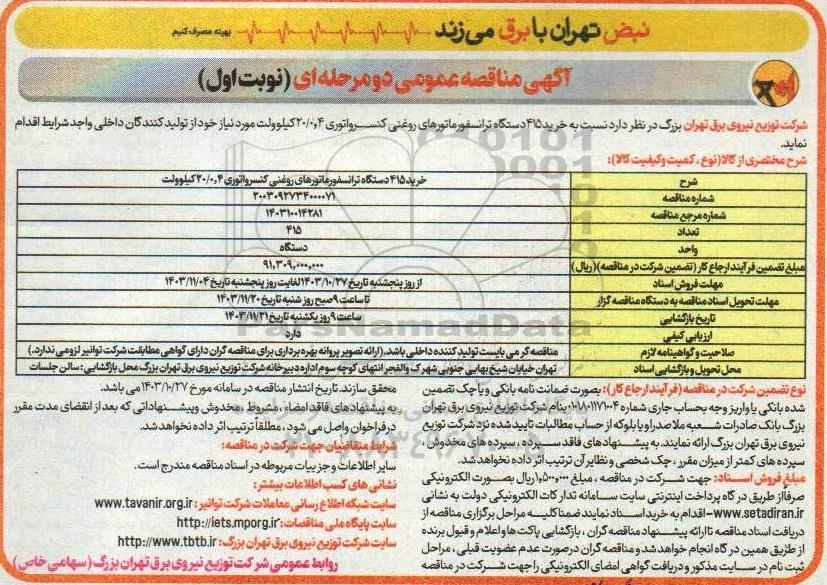 نبض تهران با برق می‌زند
بهینه مصرف کنیم
آگهی مناقصه عمومی دو مرحله ای (نوبت اول)
شرکت توزیع نیروی برق تهران بزرگ در نظر دارد نسبت به خرید ۴۱۵ دستگاه ترانسفورماتورهای روغنی کنسرواتوری ۲۰/۰,۴ کیلوولت مورد نیاز خود از تولید کنندگان داخلی واجد شرایط اقدام
نماید.
شرح مختصری از کالا (نوع ، کمیت وکیفیت کالا):
شرح خرید ۴۱۵ دستگاه ترانسفورماتورهای روغنی کنسرواتوری ۲۰/۰,۴ کیلوولت
شماره مناقصه ۲۰۰۳۰۹۲۷۳۴۰۰۰۰۷۱
شماره مرجع مناقصه ۱۴۰۳۱۰۰۱۴۲۸۱
تعداد ۴۱۵
واحد دستگاه
مبلغ تضمین فرآیند ارجاع کار (تضمین شرکت در مناقصه)(ریال) ۹۱,۳۰۹,۰۰۰,۰۰۰
مهلت فروش اسناد از روز پنجشنبه تاریخ ۱۴۰۳/۱۰/۲۷ لغایت روز پنجشنبه تاریخ ۱۴۰۳/۱۱/۰۴
مهلت تحویل اسناد مناقصه به دستگاه مناقصه گزار تا ساعت ۹ صبح روز شنبه تاریخ ۱۴۰۳/۱۱/۲۰
تاریخ بازگشایی ساعت ۹ روز یکشنبه تاریخ ۱۴۰۳/۱۱/۲۱
ارزیابی کیفی دارد
صلاحیت و گواهینامه لازم مناقصه گر می بایست تولید کننده داخلی باشد. (ارائه تصویر پروانه بهره برداری برای مناقصه گران دارای گواهی مطابقت شرکت توانیر لزومی ندارد.)
محل تحویل و بازگشایی اسناد تهران خیابان شیخ بهایی جنوبی شهرک والفجر انتهای کوچه سوم اداره دبیرخانه شرکت توزیع نیروی برق تهران بزرگ محل بازگشایی: سالن جلسات
نوع تضمین شرکت در مناقصه (فرآیند ارجاع کار): بصورت ضمانت نامه بانکی و یا چک تضمین
شده بانکی یا واریز وجه بحساب جاری شماره بنام شرکت توزیع نیروی برق تهران
بزرگ بانک صادرات شعبه ملاصدرا و یا بلوکه از حساب مطالبات تایید شده نزد شرکت توزیع
نیروی برق تهران بزرگ ارائه نمایند. به پیشنهادهای فاقد سپرده ، سپرده های مخدوش ،
سپرده های کمتر از میزان مقرر ، چک شخصی و نظایر آن ترتیب اثر داده نخواهد شد.
مبلغ فروش اسناد: جهت شرکت در مناقصه ، مبلغ ۱,۵۰۰,۰۰۰ ریال بصورت الکترونیکی
صرفا از طریق درگاه پرداخت اینترنتی سایت سامانه تدارکات الکترونیکی دولت به نشانی
www.setadiran.ir- اقدام به خرید اسناد نمایند ضمنا کلیه مراحل برگزاری مناقصه از
دریافت اسناد مناقصه تا ارائه پیشنهاد مناقصه گران ، بازگشایی پاکت ها و اعلام و قبول برنده
از طریق همین درگاه انجام خواهد شد و مناقصه گران در صورت عدم عضویت قبلی ، مراحل
ثبت نام در سایت مذکور و دریافت گواهی امضای الکترونیکی را جهت شرکت در مناقصه
محقق سازند. تاریخ انتشار مناقصه در سامانه مورخ ۱۴۰۳/۱۰/۲۷ می باشد.
به پیشنهادهای فاقد امضاء ، مشروط ، مخدوش و پیشنهاداتی که بعد از انقضای مدت مقرر
در فراخوان واصل می شود ، مطلقا ترتیب اثر داده نخواهد شد.
شرایط متقاضیان جهت شرکت در مناقصه:
سایر اطلاعات و جزییات مربوطه در اسناد مناقصه مندرج است.
نشانی های کسب اطلاعات بیشتر:
سایت شبکه اطلاع رسانی معاملات شرکت توانیر: www.tavanir.org.ir
سایت پایگاه ملی مناقصات: http://iets.mporg.ir
سایت شرکت توزیع نیروی برق تهران بزرگ: http://www.tbtb.ir
روابط عمومی شرکت توزیع نیروی برق تهران بزرگ (سهامی خاص)
ParsNamadData